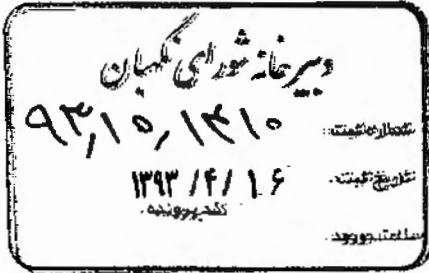 دبیرخانه شورای نگهبان
شماره ثبت: ۹۳/۱۵/۱۴۱۰
تاریخ ثبت: ۱۳۹۳/۴/۱۶
کد پرونده:
ساعت ورود: